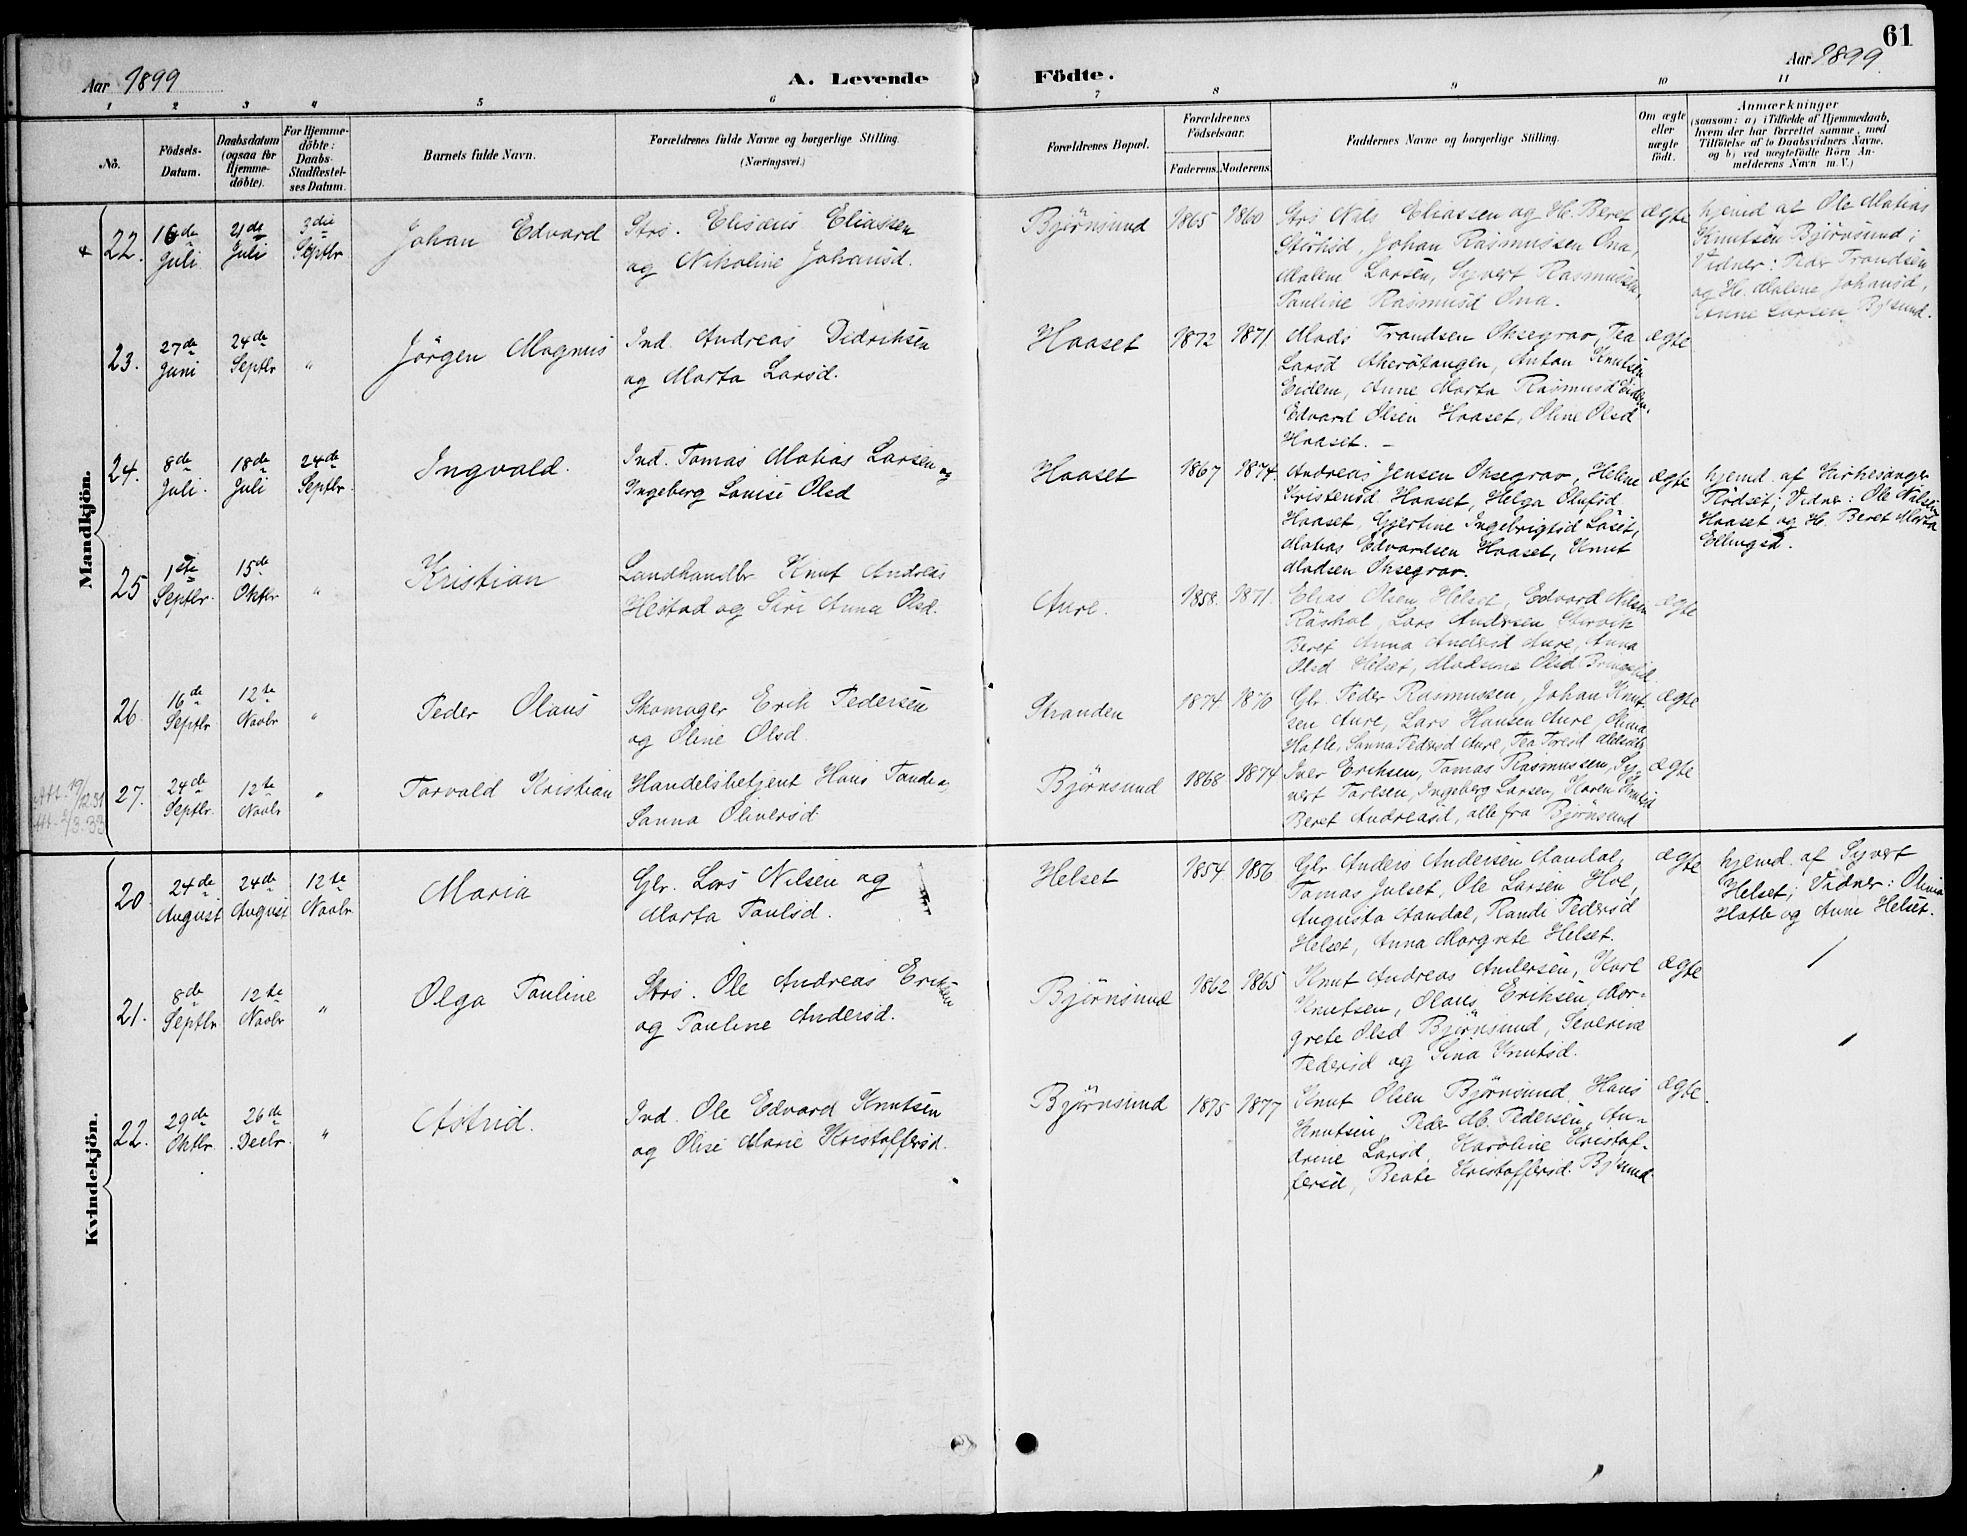 61
Aar 1899
A. Levende
Födte.
Aar 1899
1 2 3 4 5 6 7 8 9 10 11
No.
Födsels-
Datum.
Daabsdatum
(ogsaa for
Hjemme-
döbte).
For Hjemme-
döbte:
Daabs-
Stadfæstel-
ses Datum.
Barnets fulde Navn.
Forældrenes fulde Navne og borgerlige Stilling.
(Næringsvei.)
Forældrenes Bopæl.
Forældrenes
Födselsaar.
Faderens. Moderens.
Faddernes Navne og borgerlige Stilling.
Om ægte
eller
uægte
født.
Anmærkninger
(saasom: a) i Tilfælde af Hjemmedaab,
hvem der har forrettet samme, med
Tilföielse af to Daabsvidners Navne,
og b) ved uægtefödte Börn An-
melderens Navn m. V.)
Mandkjön.
22.
16de
Juli
21de
Juli
3die
Septbr
Johan Edvard
Strs. Elisæus Eliassen
og Nikoline Johansd.
Björnsund
1865
1860
Strs Nils Eliassen og H. Beret
Johan Rasmussen Ona,
Malene Larsen, Syvert Rasmussen,
Pauline Rasmusd Ona.
ægte
hjemd af Ole Matias
Knutsen Björnsund;
Vidner: Peder Trandsen
og H. Malene Johansd,
Anne Larsen Bj'sund.
23.
27de
Juni
24de
Septbr
"
Jörgen Magnus
Ind. Andreas Didriksen
og Marta Larsd.
Haaset
1872
1871
Mads Trandsen Oksegrav, Tea
Larsd Akerötangen, Anton Knutsen
Eidem, Anne Marta Rasmusd Eidem,
Edvard Olsen Haaset, Oline Olsd
Haaset. –
ægte
24.
8de
Juli.
18de
Juli
24de
Septbr.
Ingvald.
Ind. Tomas Matias Larsen og
Ingeberg Louise Olsd
Haaset
1867
1874.
Andreas Jensen Oksegrav, Helene
Kristensd Haaset, Helga Olufsd
Haaset, Gjertine Ingebrigtsd Löset,
Matias Edvardsen Haaset, Knut
Madsen Oksegrav.
ægte
hjemd. af Kirkesanger
Rödset; Vidner: Ole Nilsen
Haaset og H. Beret Marta
Ellingsd.
25
1ste
Septbr.
15de
Oktbr
"
Kristian
Landhandlr Knut Andreas
Hestad og Siri Anna Olsd.
Aure.
1858.
1871.
Elias Olsen Helset, Edvard Nilsen
Lars Andersen
Beret Anna Andersd Aure, Anna
Olsd Helset, Olsd
ægte
26.
16de
Septbr
12te
Novbr
"
Peder Olaus
Skomager Erik Pedersen
og Oline Olsd.
Stranden
1874
1870
Gbr Peder Rasmussen, Johan Knut-
sen Aure, Lars Hansen Aure, Olina
Hatle, Sanna Pedersd Aure, Tea
ægte
27.
24de
Septbr.
12te
Novbr
"
Torvald Kristian
Handelsbetjent Hans Tande og
Sanna Oliversd.
Björnsund
1868
1874
Iver Eriksen, Tomas Rasmussen, Sy-
vert Tarlsen, Ingeberg Larsen, Karen Knutsd
Beret Andreasd, alle fra Björnsund
ægte
Kvindekjön.
20.
24de
August
24de
August
12te
Novbr
Maria
Gbr. Lars Nilsen og
Marta Paulsd.
Helset
1854
1856
Gbr Anders Andersen Aandal,
Tomas Julset, Ole Larsen Hol,
Augusta Aandal, Randi Pedersd
Helset, Anna Margrete Helset.
ægte
hjemd. af Syvert
Helset; Vidner: Olina
Hatle og Anne Helset.
21.
8de
Septbr
12te
Novbr
"
Olga Pauline
Strs. Ole Andreas Eriksen
og Pauline Andersd.
Björnsund
1862
1865
Knut Andreas Andersen, Karl
Knutsen, Olaus Eriksen, Mar-
grete Olsd Björnsund, Severine
Pedersd og Sina Knutsd.
ægte
22.
29de
Oktbr.
26de
Decbr.
"
Astrid.
Ind. Ole Edvard Knutsen
og Olise Marie Kristoffersd.
Björnsund
1875
1877
Knut Olsen Björnsund, Hans
Knutsen, Peder M. Pedersen, An-
drine Larsd, Karoline Kristof-
fersd, Beate Kristoffersd. Bj'sund
ægte.